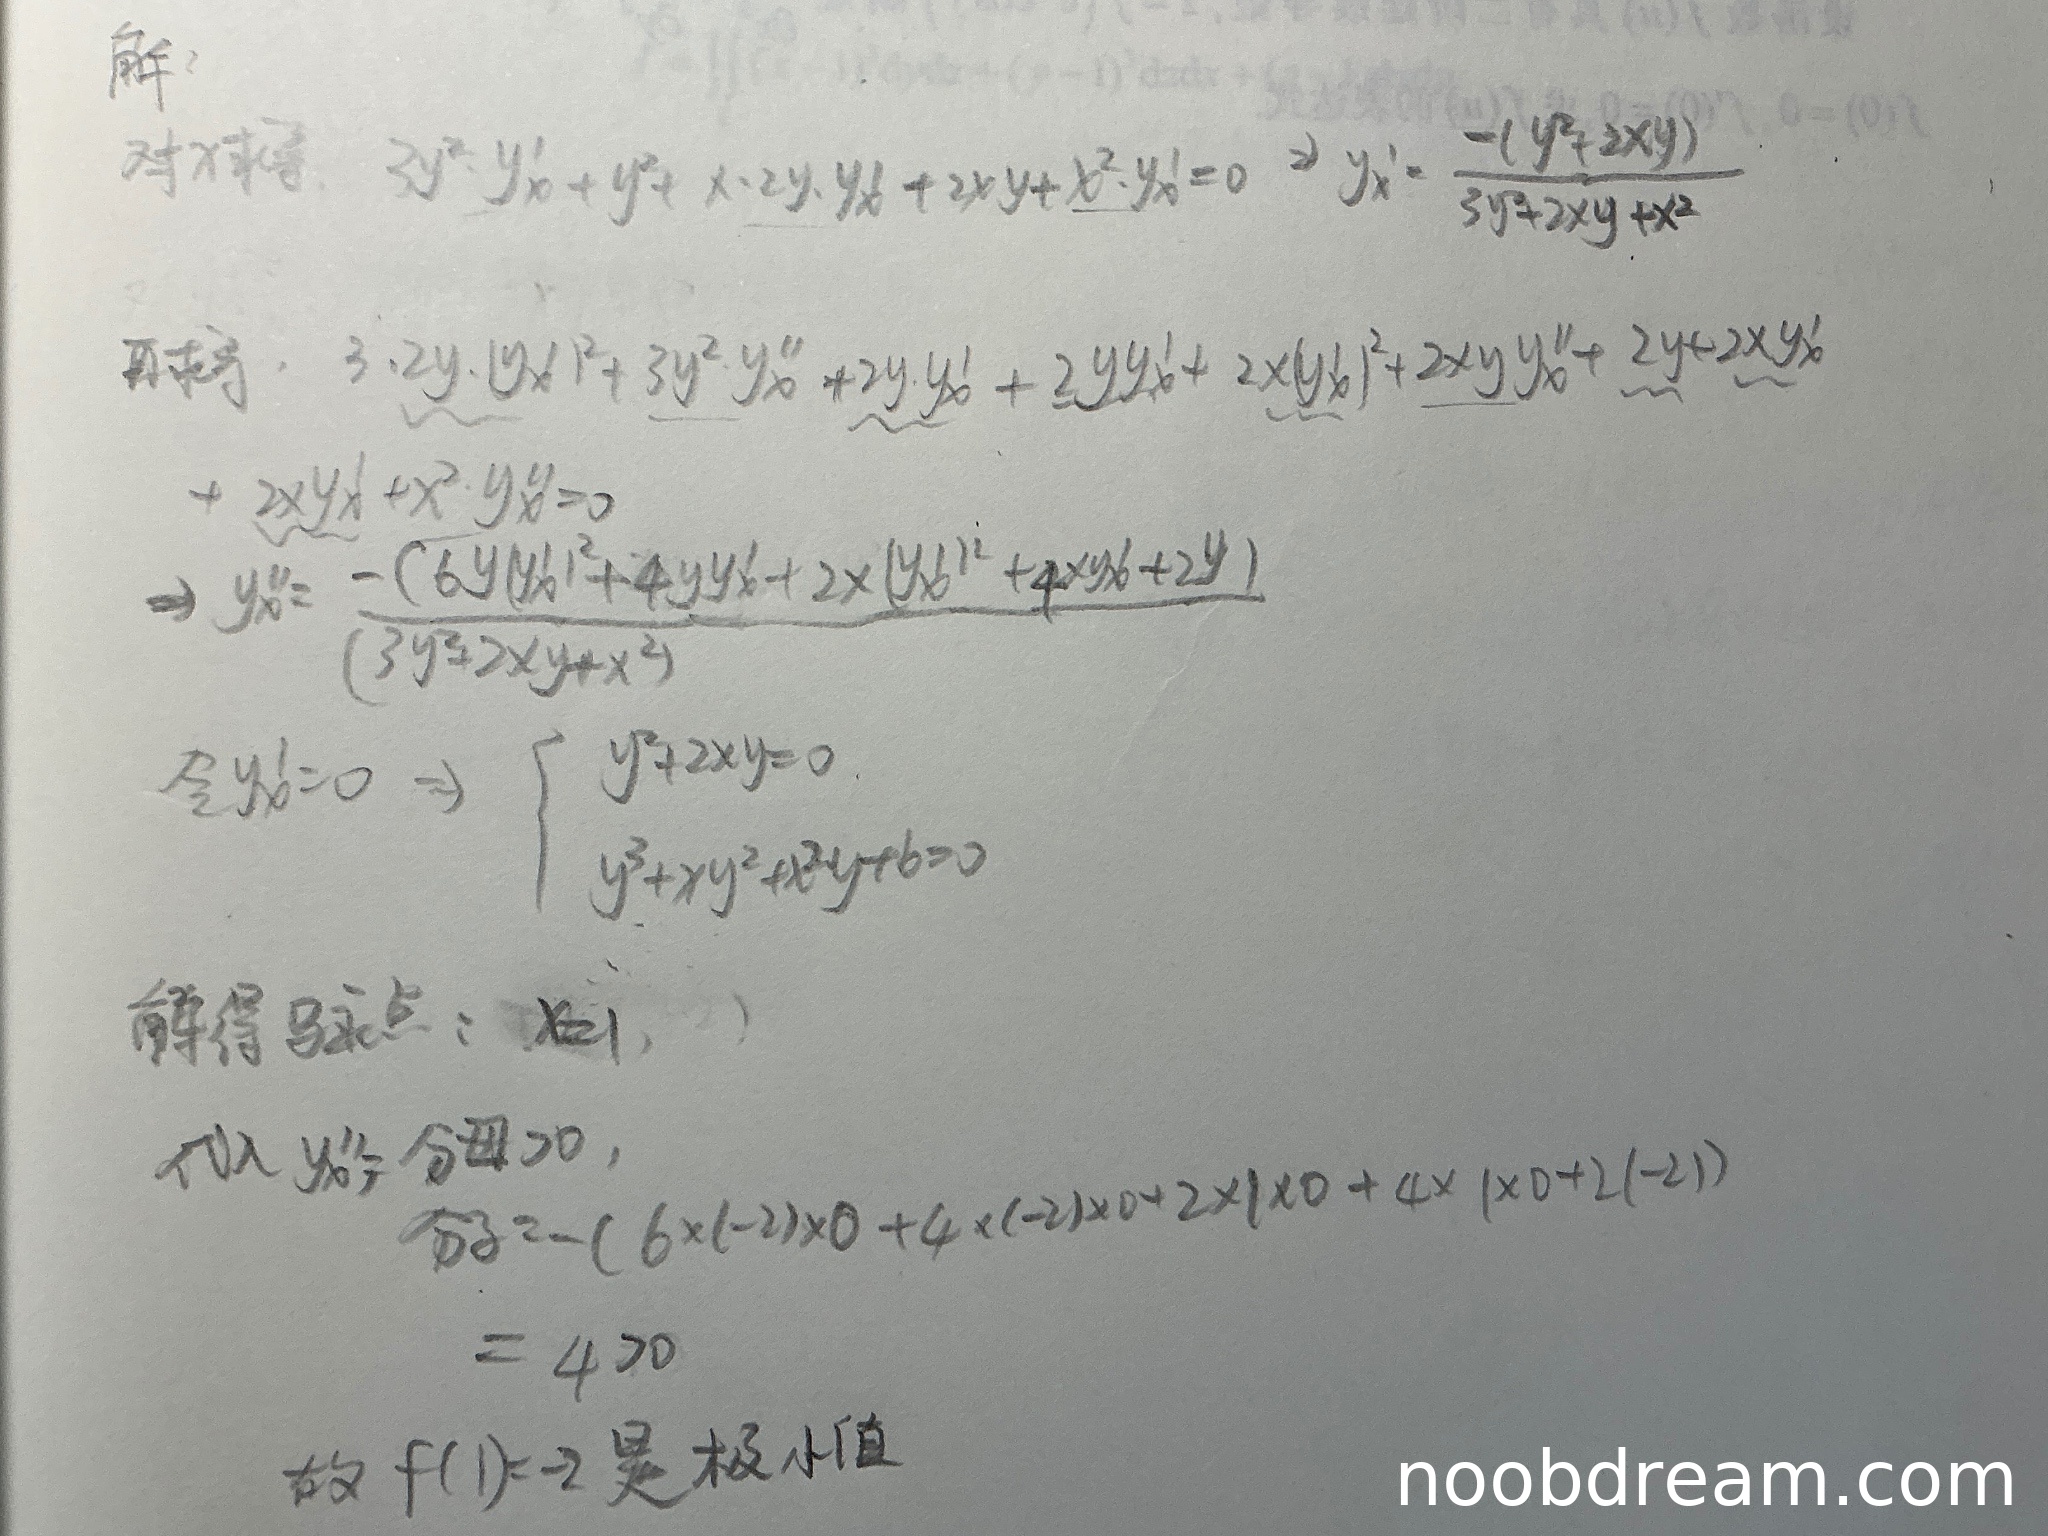 解:
对x求导. 3y²·y'ₓ + y² + x·2y·y'ₓ + 2xy + x²·y'ₓ = 0 ⇒ y'ₓ = -(y²+2xy) / (3y²+2xy+x²)
再求导. 3·2y·(y'ₓ)² + 3y²·y''ₓ + 2y·y'ₓ + 2yy'ₓ + 2x(y'ₓ)² + 2xyy''ₓ + 2y + 2xy'ₓ
+ 2xy'ₓ + x²·y''ₓ = 0
⇒ y''ₓ = -(6y(y'ₓ)² + 4yy'ₓ + 2x(y'ₓ)² + 4xy'ₓ + 2y) / (3y²+2xy+x²)
令y'ₓ=0 ⇒ { y²+2xy=0.
y³+xy²+x²y+6=0
解得驻点: x=1,
代入 y''ₓ, 分母>0,
分子=-(6×(-2)×0+4×(-2)×0+2×1×0+4×1×0+2(-2))
= 4>0
故 f(1)=-2 是极小值
noobdream.com